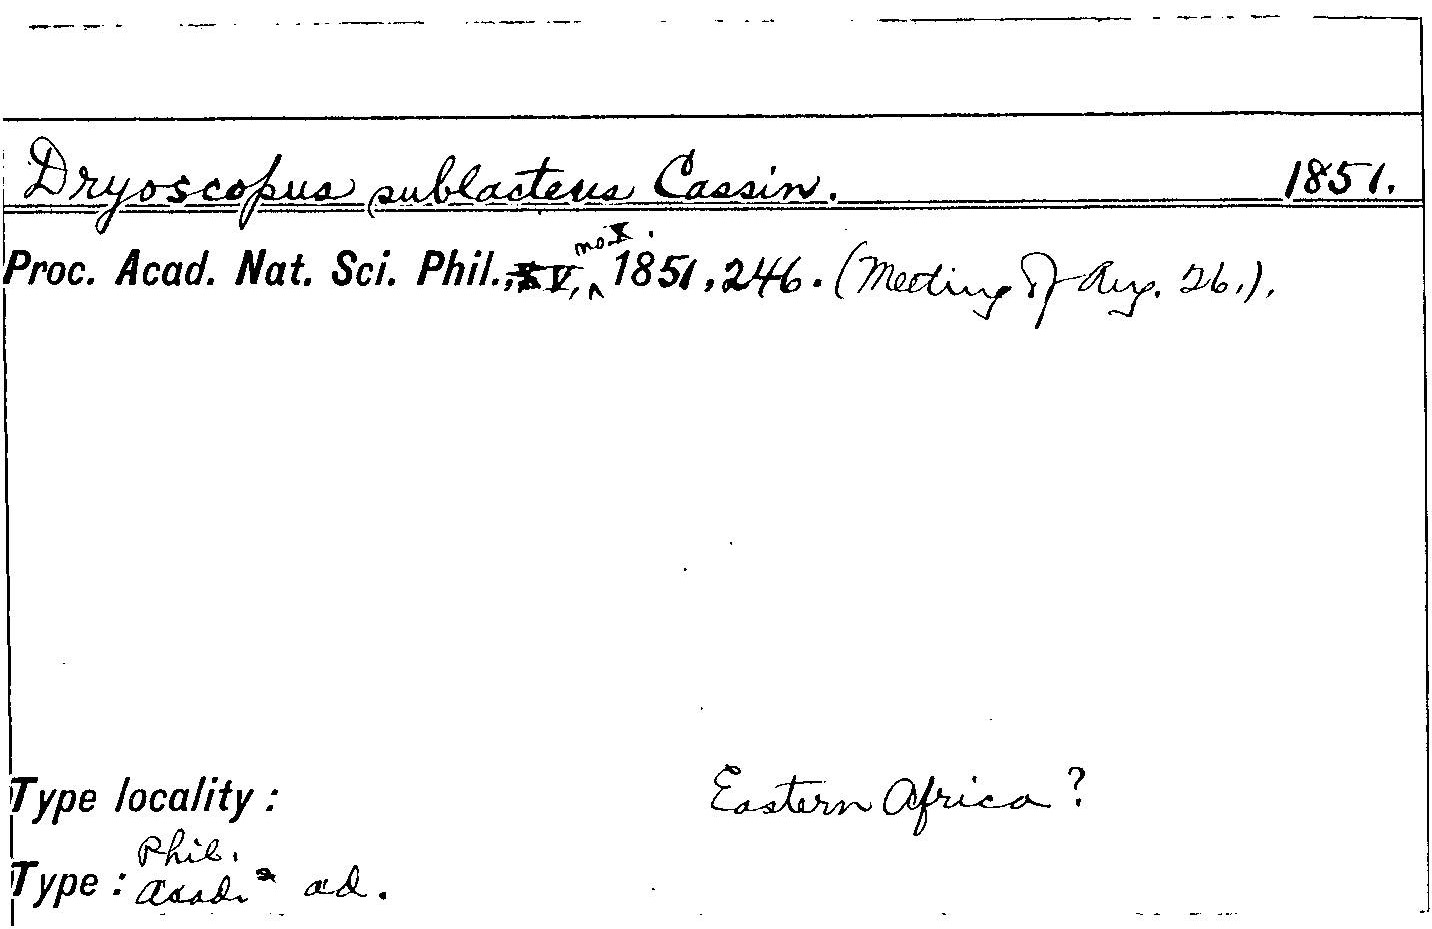 Dryoscopus sublacteus Cassin. 1851.
Proc. Acad. Nat. Sci. Phil., V, no X. 1851, 246. (Meeting of Aug. 26.).
Type locality: Eastern Africa?
Phil.
Type: Acad. ad.